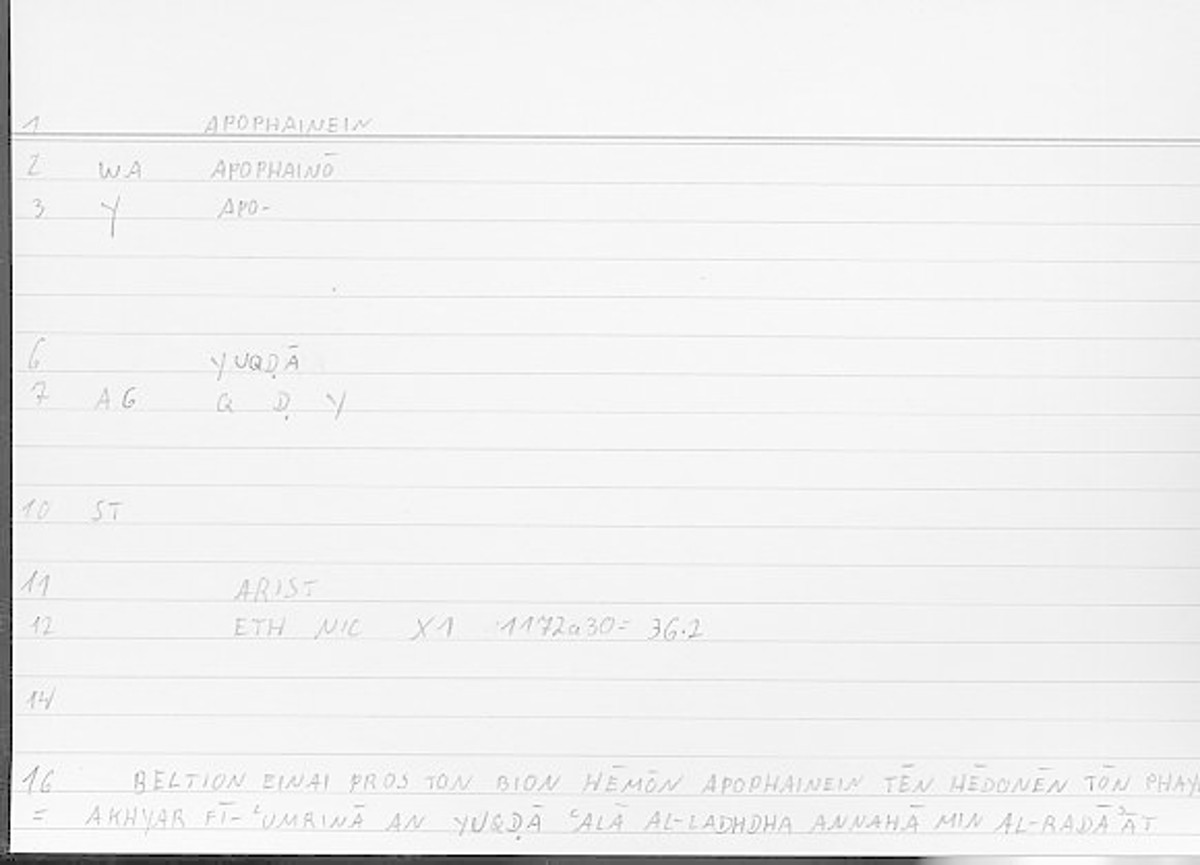 1 APOPHAINEIN
2 WA APOPHAINŌ
3 Y APO-
6 YUQḌĀ
7 AG Q Ḍ Y
10 ST
11 ARIST
12 ETH NIC X1 1172a30= 36.2
14
16 BELTION EINAI PROS TON BION HĒMŌN APOPHAINEIN TĒN HĒDONĒN TŌN PHAY
= AKHYAR FĪ-ʿUMRINĀ AN YUQḌĀ ʿALĀ AL-LADHDHA ANNAHĀ MIN AL-RADĀʾĀT